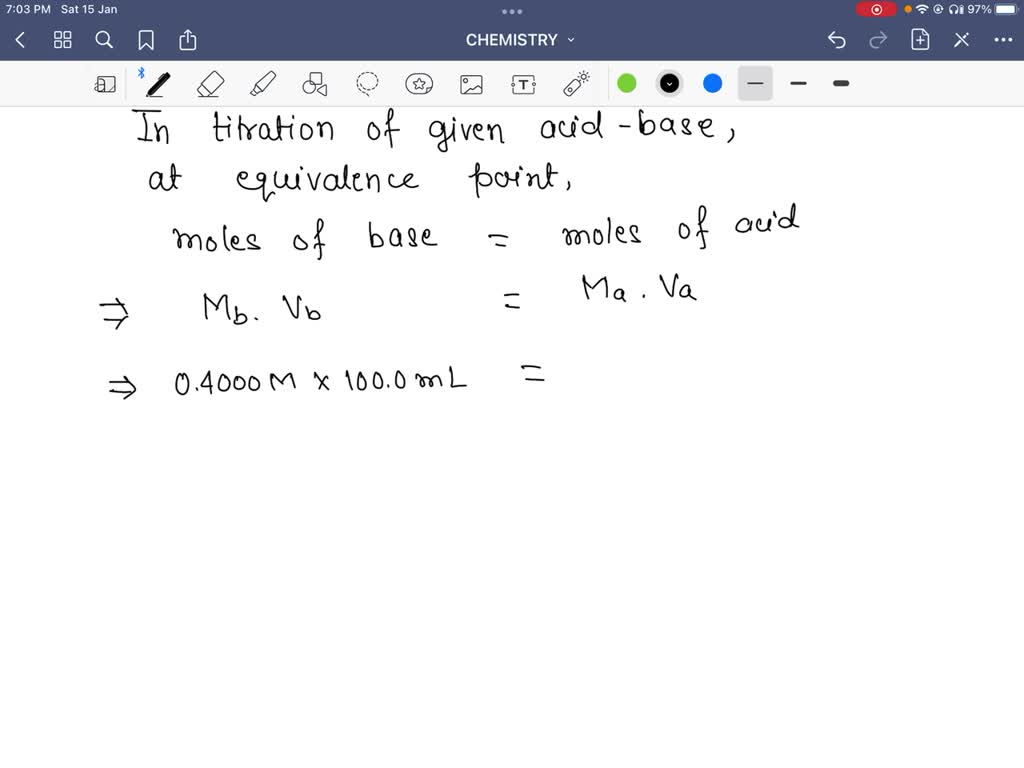 7:03 PM Sat 15 Jan 97%
CHEMISTRY
T
In titration of given acid-base,
at equivalence point,
moles of base = moles of acid
⇒ Mb. Vb = Ma. Va
⇒ 0.4000 M x 100.0 mL =